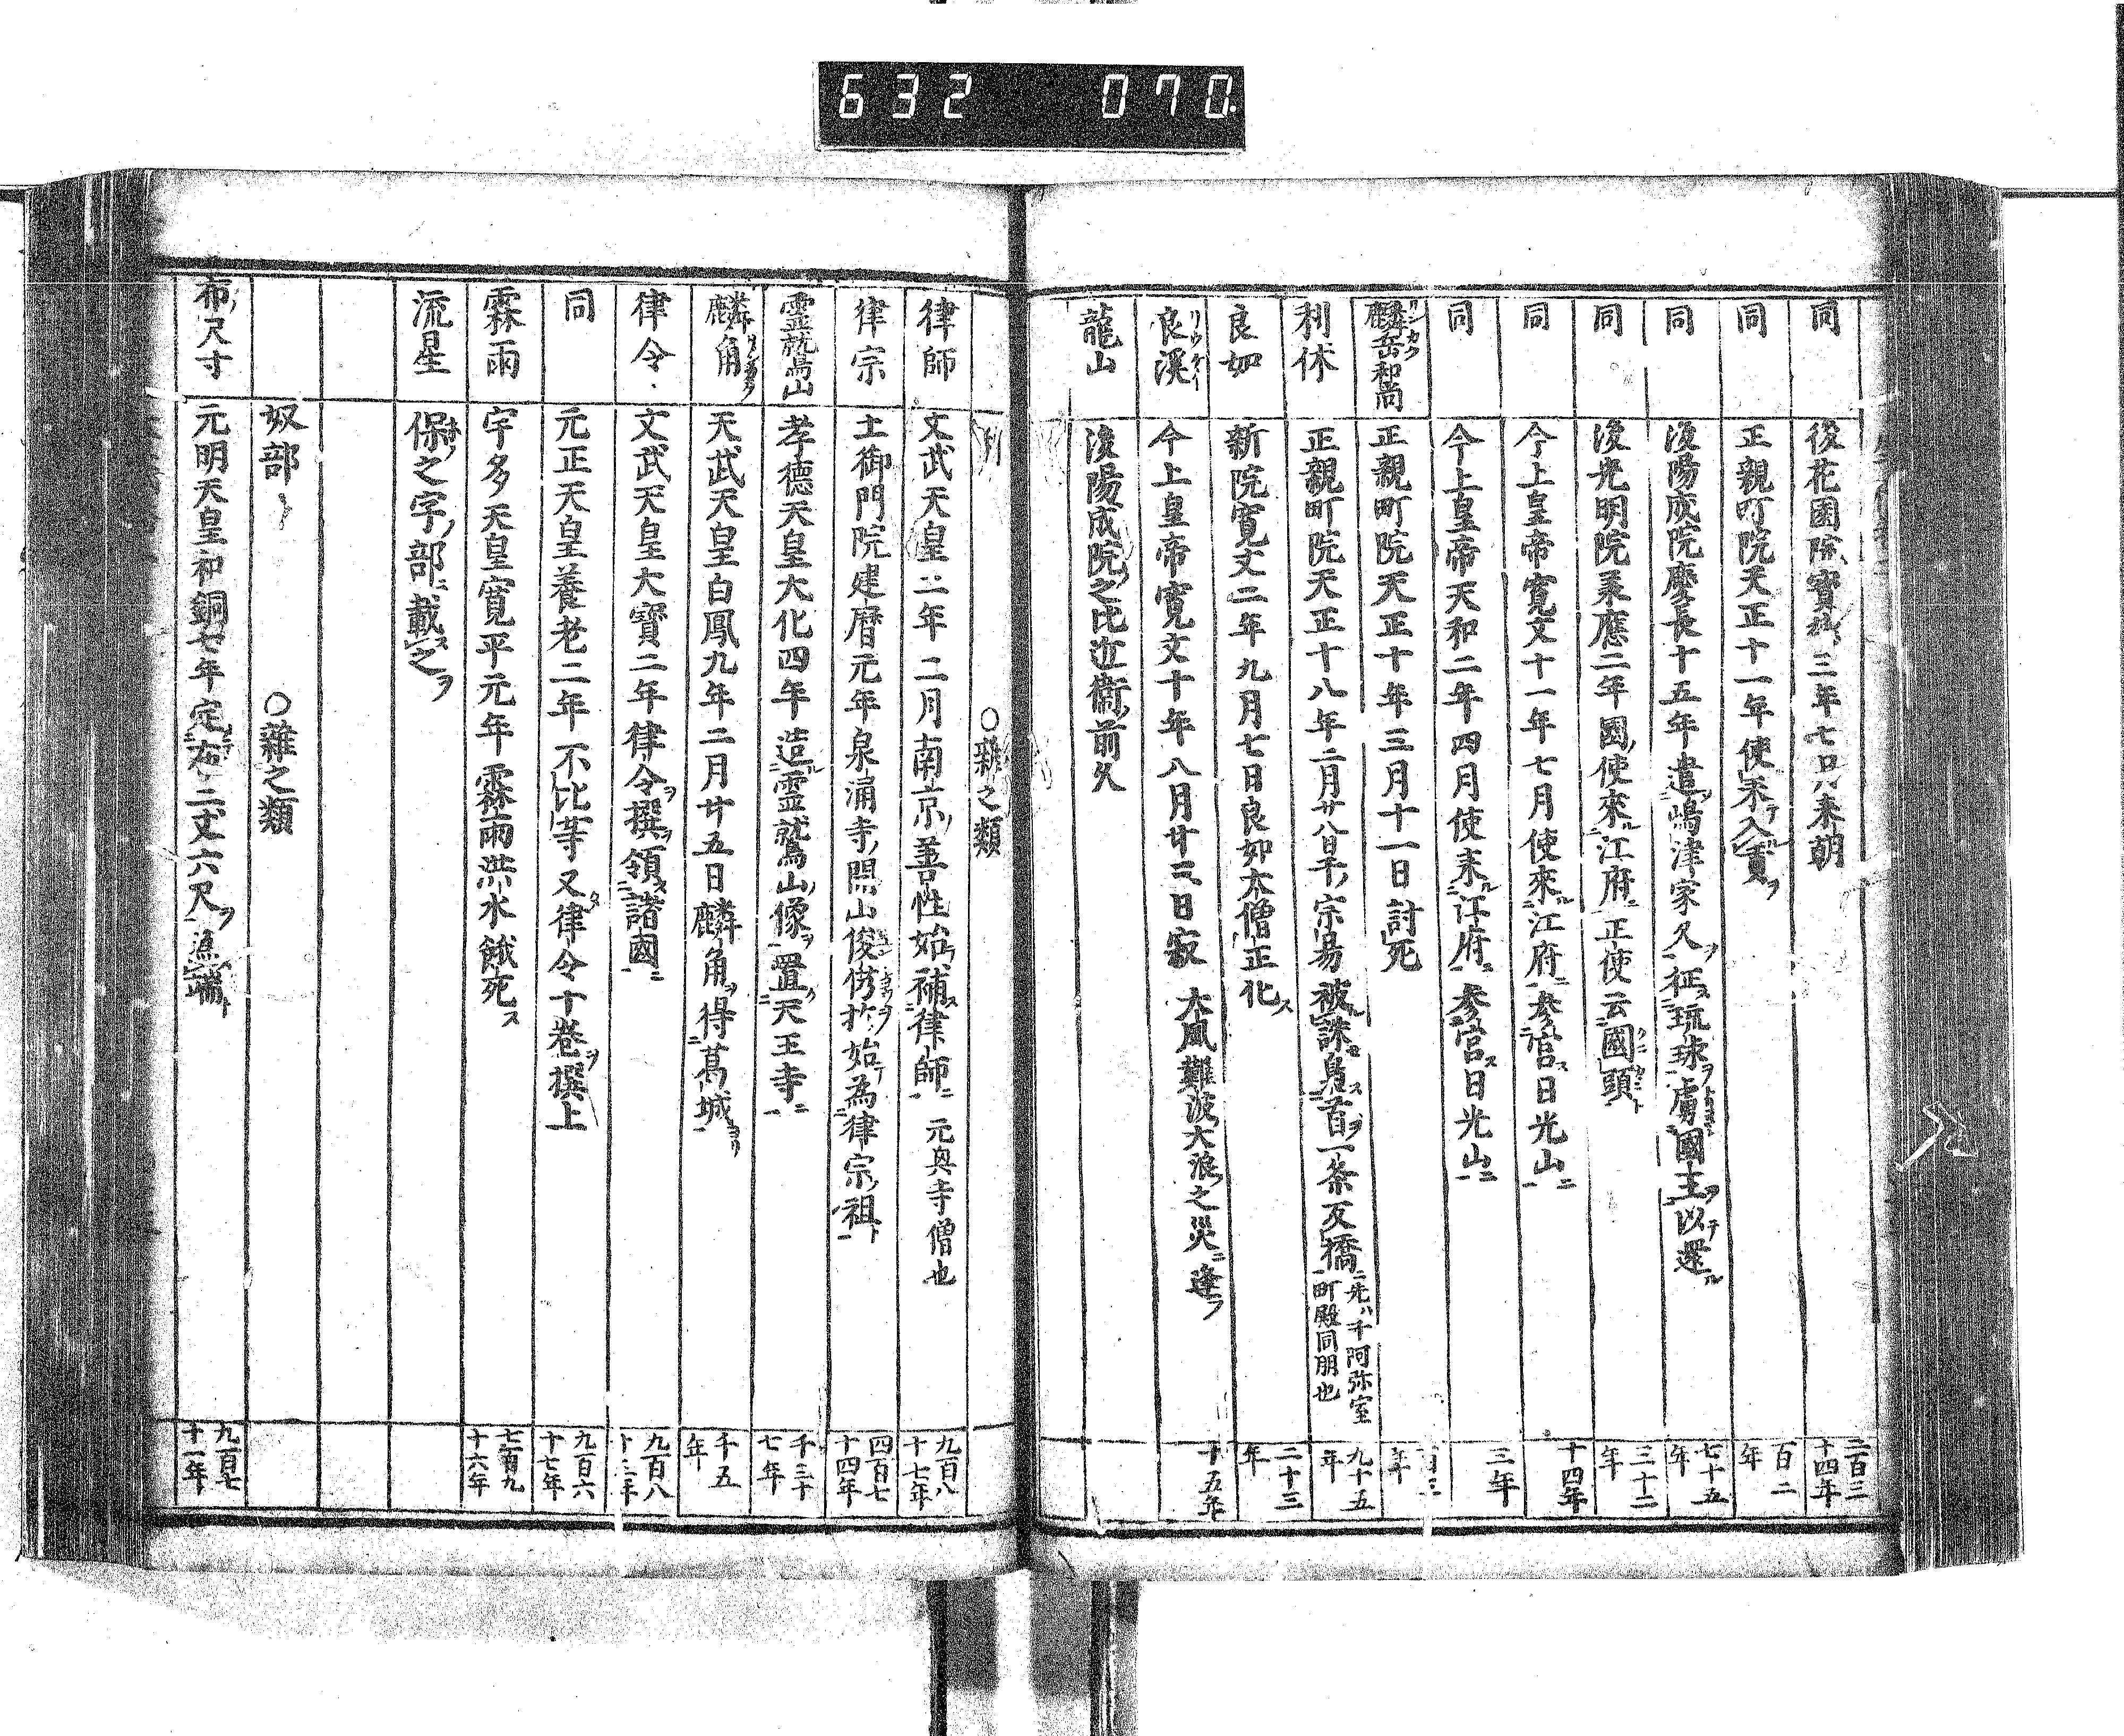 632 070
同 後花園院寶徳三年七月ハ来朝
二百三十四年
同 正親町院天正十一年使来テ入貢ヲ
百二年
同 後陽成院慶長十五年遣嶋津家久ヲ征ス琉球ヲ虜國王ヲ以テ還ル
七十五年
同 後光明院承應二年國使來ル江府ニ正使云國頭ト
三十二年
同 今上皇帝寛文十一年七月使來ル江府ニ参宮ス日光山ニ
十四年
同 今上皇帝天和二年四月使来ル江府ニ参宮ス日光山ニ
三年
麟岳和尚 正親町院天正十年三月十一日討死
利休 正親町院天正十八年二月廿八日千ノ宗易被誅セ梟ス首ヲ一条反橋ニ先ハ千阿弥室町殿同朋也
九十五年
良如 新院寛文二年九月七日良如大僧正化ス
二十三年
良溪 今上皇帝寛文十年八月廿三日寂 大風難波大浪之災ニ逢フ
十五年
龍山 後陽成院之比近衛前久
○雜之類
律師 文武天皇二年二月南京ノ善性始テ補ス律師ニ 元興寺僧也
九百八十七年
律宗 土御門院建暦元年泉涌寺ノ開山俊芿始テ為律宗ノ祖ト
四百七十四年
霊就鳥山 孝德天皇大化四年造ル霊鷲山ノ像ヲ置ク天王寺ニ
千三十七年
麟角 天武天皇白鳳九年二月廿五日麟角ヲ得葛城ヨリ
千五年
律令 文武天皇大寶二年律令ヲ撰ヲ領ス諸國ニ
九百八十三年
同 元正天皇養老二年不比等又律令十巻ヲ撰上
九百六十七年
霖雨 宇多天皇寛平元年霖雨洪水餓死ス
七百九十六年
流星 保ノ之字ノ部ニ載ス之ヲ
奴部 ○雜之類
布ノ尺寸 元明天皇和銅七年定布ノ二丈六尺ヲ為端ト
九百七十一年